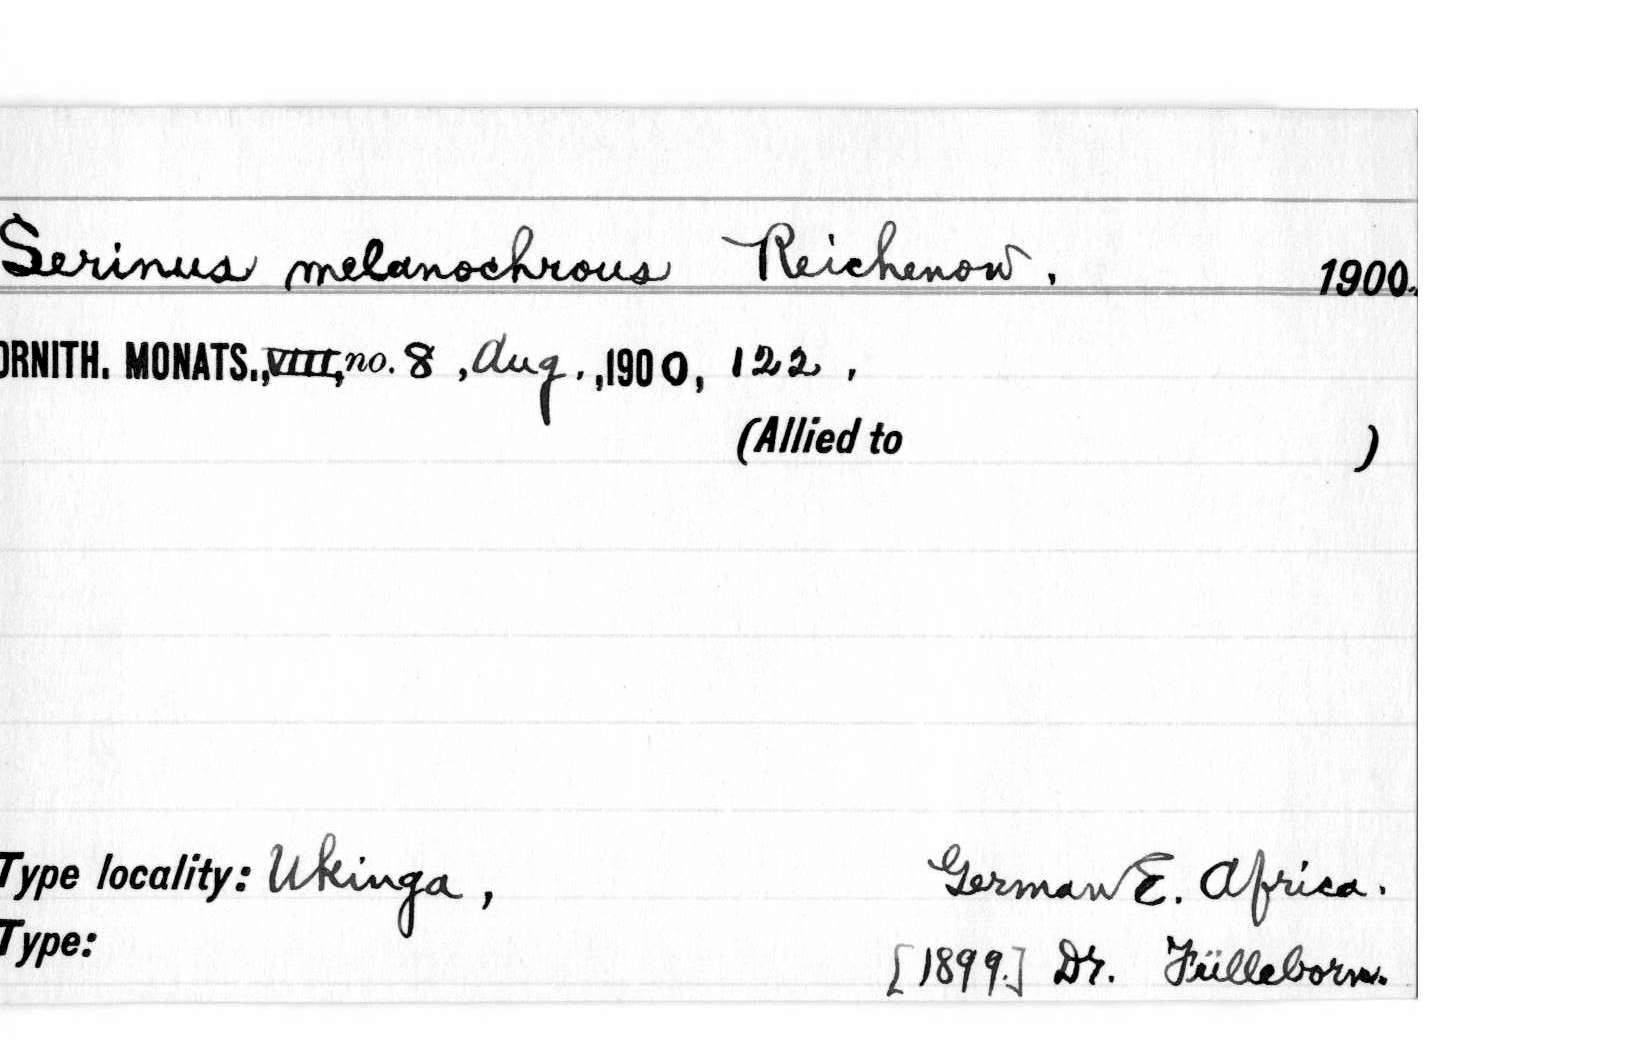 Serinus melanochrous Reichenow. 1900.
ORNITH. MONATS., VIII, no. 8, Aug., 1900, 122,
(Allied to )
Type locality: Ukinga, German E. Africa.
Type: [1899.] Dr. Fülleborn.